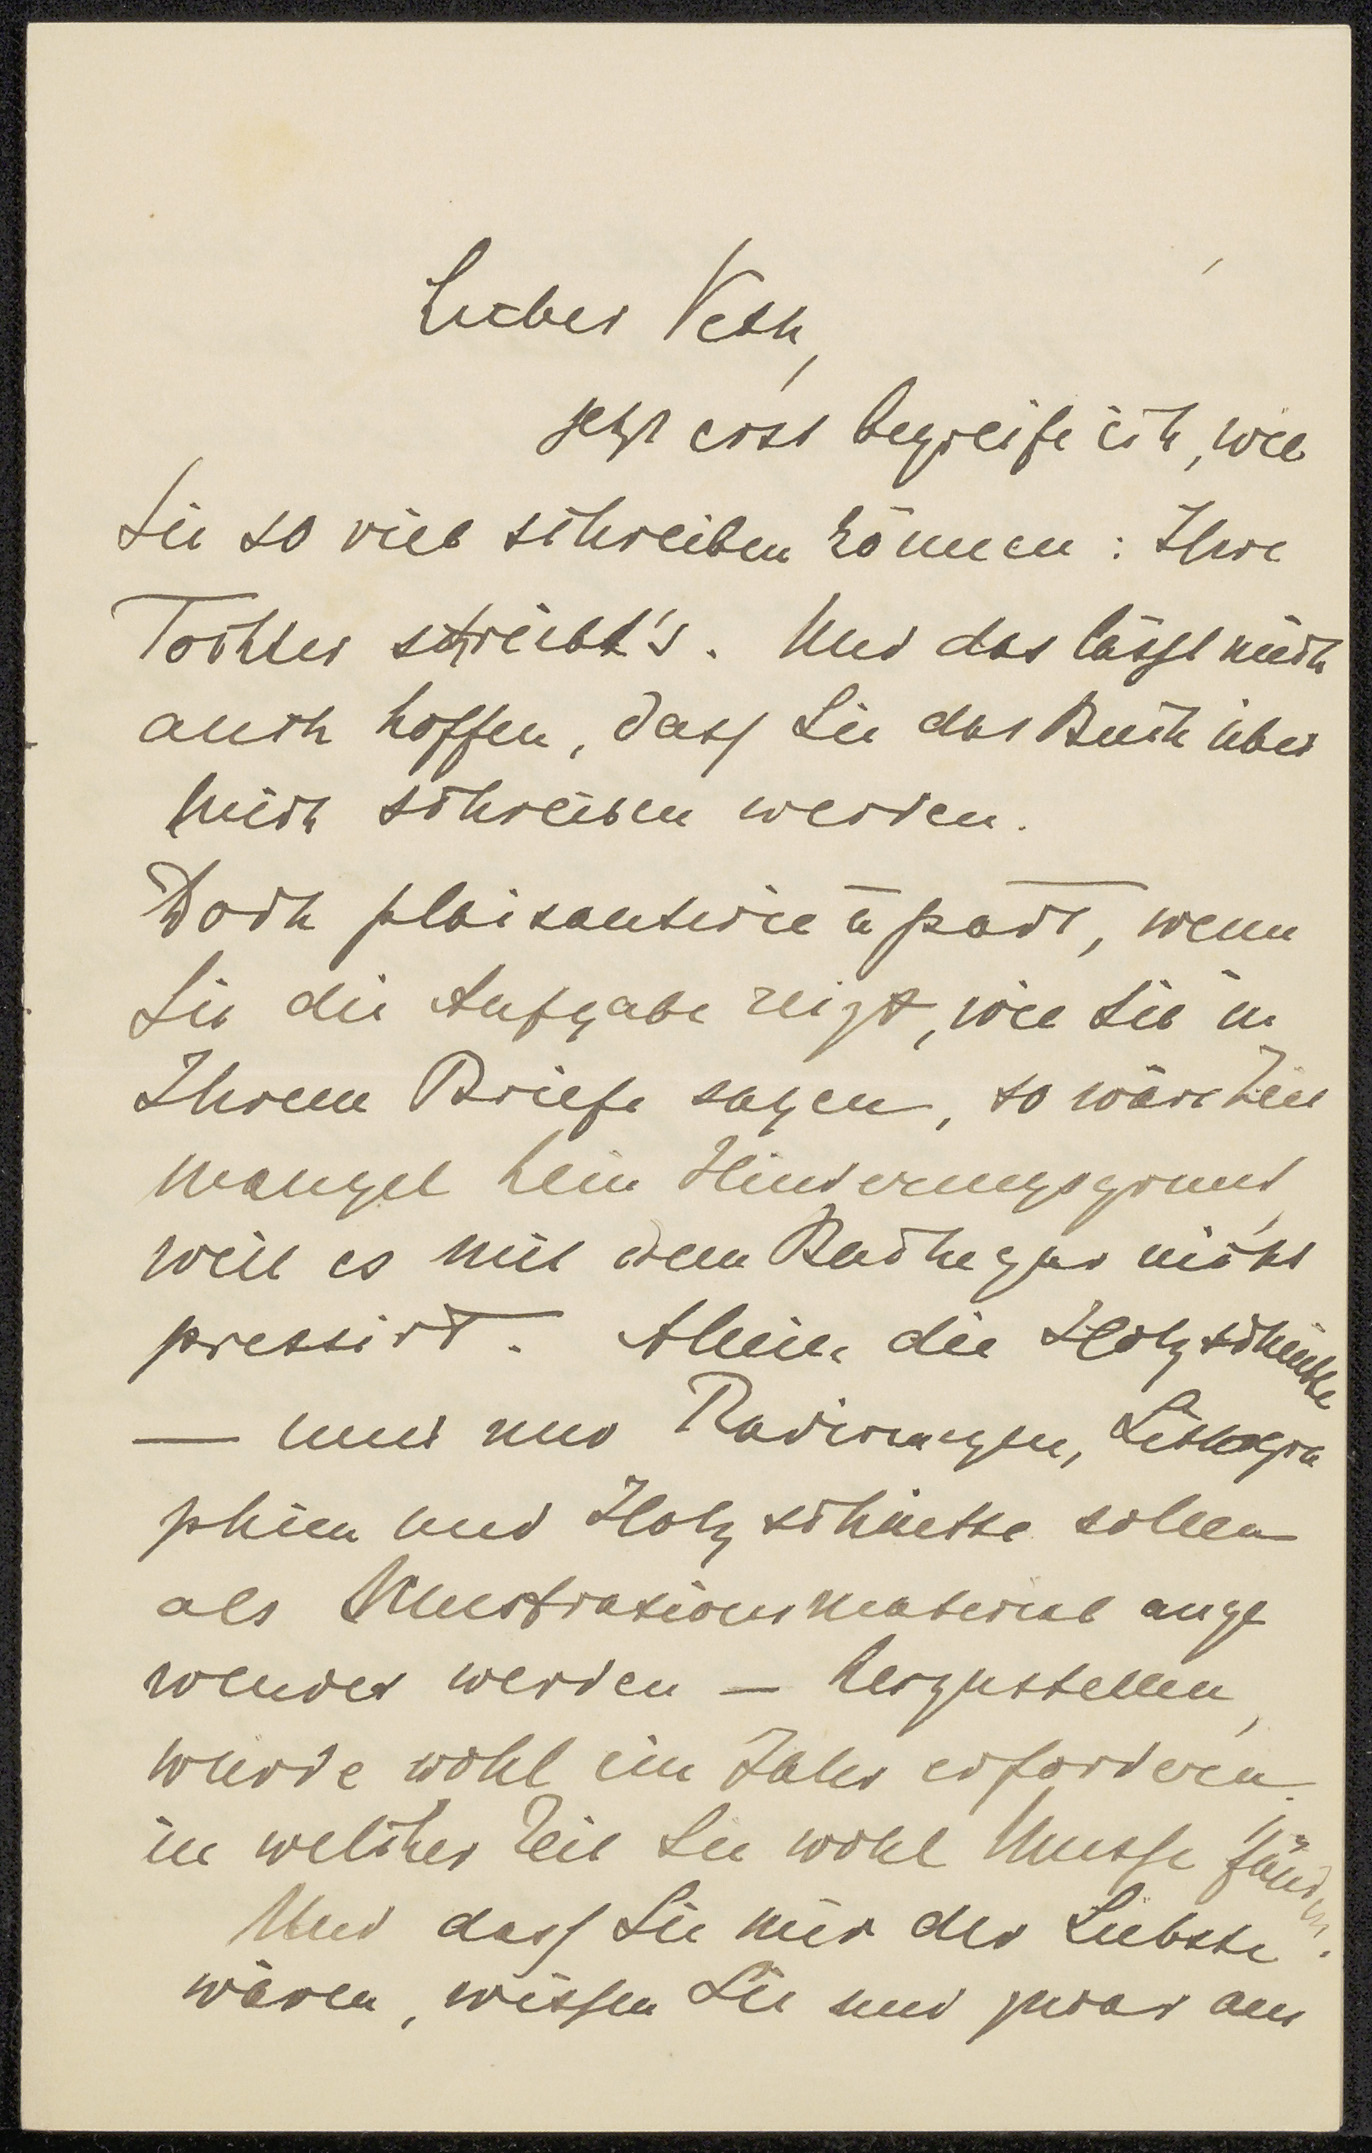 Lieber Veth,
jetzt erst begreife ich, wie
Sie so viel schreiben können: Ihre
Tochter schreibt's. Und das lässt mich
auch hoffen, dass Sie das Buch über
mich schreiben werden.
Doch plaisanterie à part, wenn
Sie die Aufgabe reizt, wie Sie in
Ihrem Briefe sagen, so wäre Zeit
mangel kein Hinderungsgrund,
weil es mit dem Buche gar nicht
pressirt. Allein die Holzschnitte
— und nur Radirungen, Lithogra
phien und Holzschnitte sollen
als Illustrationsmaterial ange
wendet werden — herzustellen,
würde wohl ein Jahr erfordern
in welcher Zeit Sie wohl Musse fänden.
Und dass Sie mir der Liebste
wären, wissen Sie und zwar aus